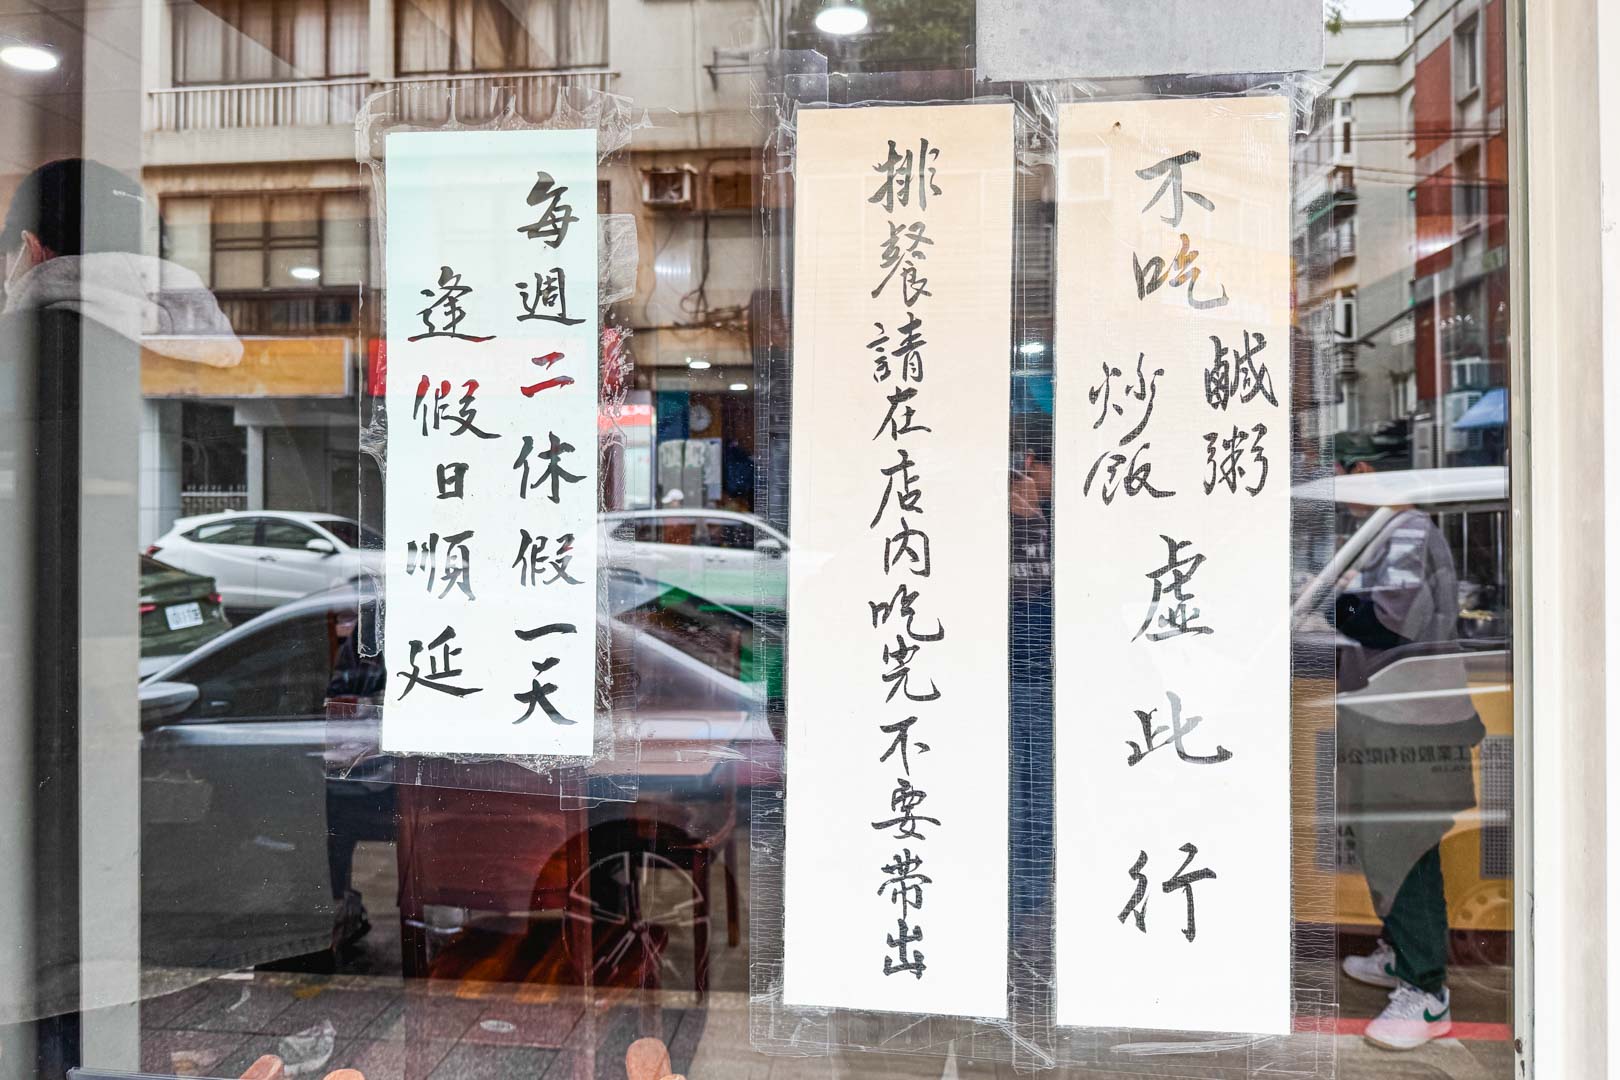 不吃鹹粥炒飯虛此行
排餐請在店內吃完不要帶出
每週二休假一天
逢假日順延
工業股份有限公